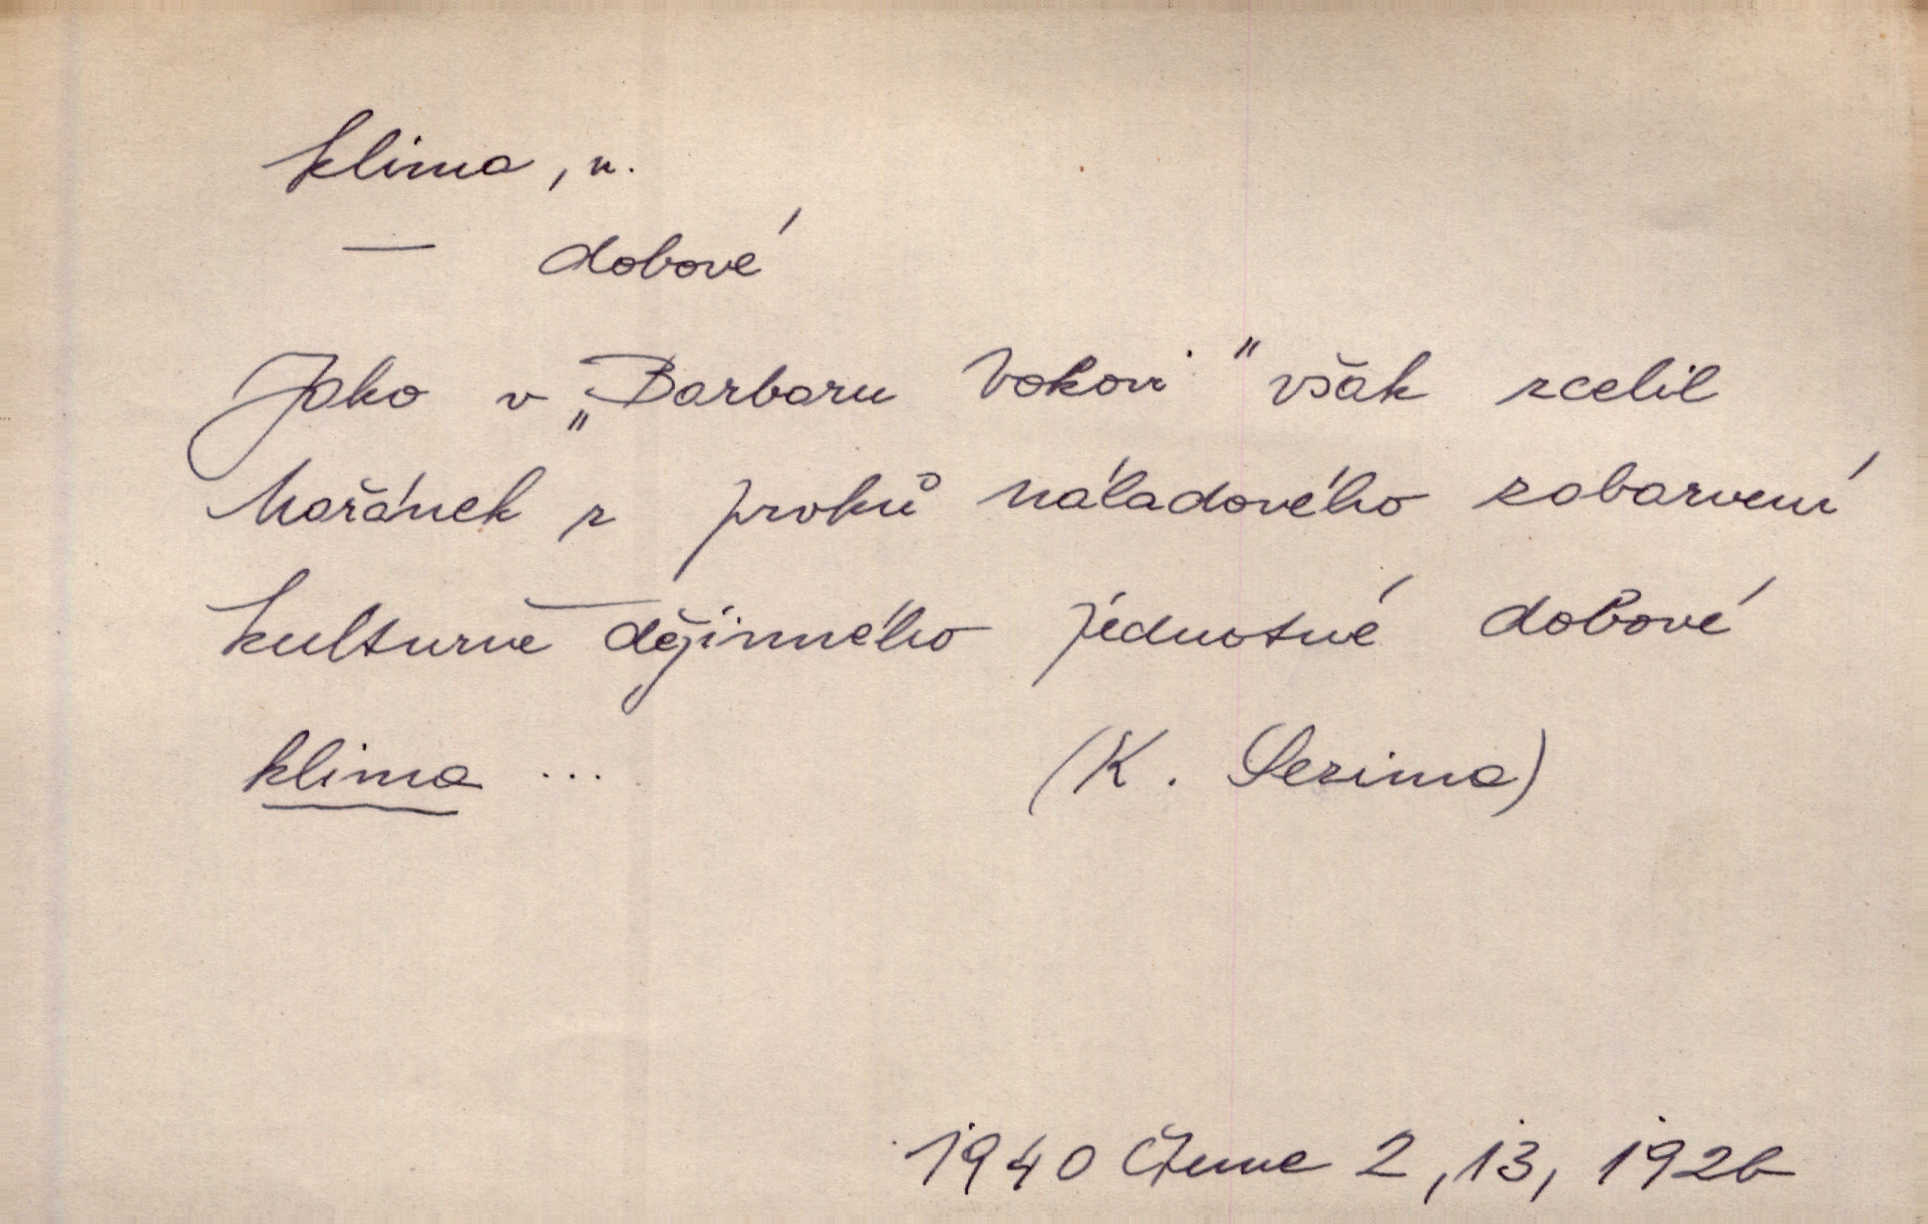 klima, n.
— dobové
Jako v „Barbaru Vokovi" však scelil
Mařánek z prvků náladového zabarvení
kulturně dějinného jednotné dobové
klima ... (K. Sezima)
1940 Čteme 2, 13, 192b